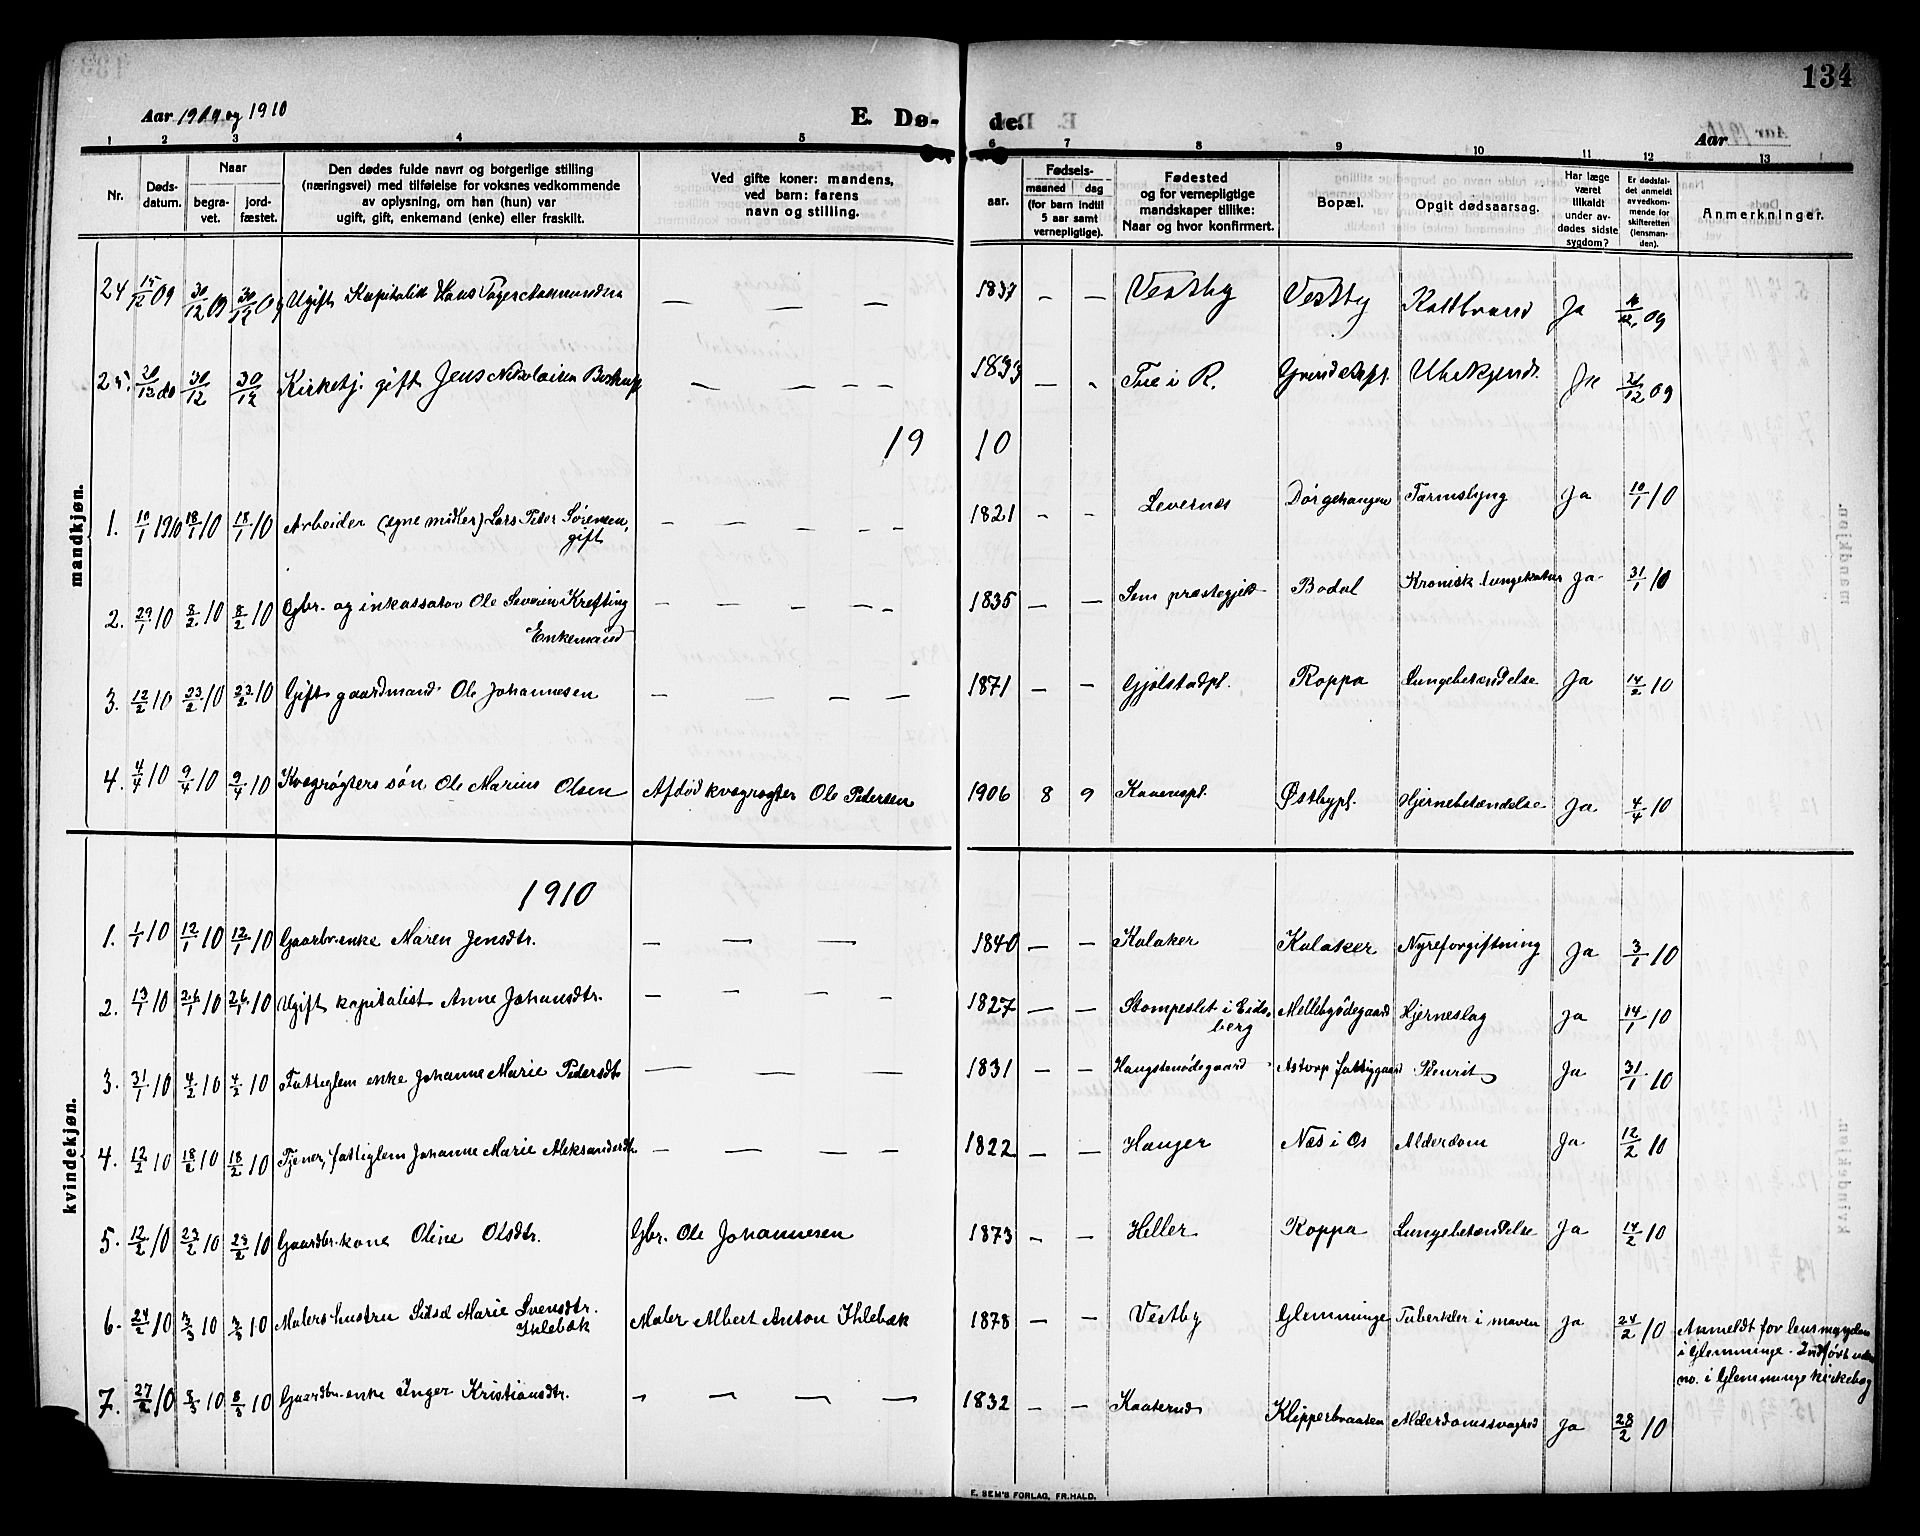 134
Aar 1909 og 1910
E. Dø- de.
Aar
1 2 3 4 5 6 7 8 9 10 11 12 13
Nr.
Døds-
datum.
Naar
begra-
vet.
jord-
fæstet.
Den dødes fulde navn og borgerlige stilling
(næringsvei) med tilføielse for voksnes vedkommende
av oplysning, om han (hun) var
ugift, gift, enkemand (enke) eller fraskilt.
Ved gifte koner: mandens,
ved barn: farens
navn og stilling.
aar.
Fødsels-
maaned dag
(for barn indtil
5 aar samt
vernepligtige).
Fødested
og for vernepligtige
mandskaper tillike:
Naar og hvor konfirmert.
Bopæl.
Opgit dødsaarsag.
Har læge
været
tilkaldt
under av-
dødes sidste
sygdom?
Er dødsfal-
det anmeldt
av vedkom-
mende for
skifteretten
(lensman-
den).
Anmerkninger.
mandkjøn.
24 15/12 09 30/12 09 30/12 09 Ugift Kapitalist Hans — — — 1837 — — Vestby Vestby Koldbrand Ja 09
25. 20/12 do 30/12 30/12 Kirketj. gift Jens Nikolaisen — — — 1833 — - R. Ubekjendt. Ja 21/12 09
19 10
1. 10/1 1910 18/1 10 18/1 10 Arbeider (egne midler) Lars Peder Sørensen,
gift — — — — 1821 - - Levernæs Dørgehaugen Tarmslyng Ja 10/1 10
2. 29/1 10 8/2 10 8/2 10 Gbr. og inkassator Ole Severin Krefting
Enkemand — — — — 1835 — — Sem præstegjeld Bodal Kronisk lungekatar Ja 31/1 10
3. 12/2 10 23/2 10 23/2 10 Gift gaardmand Ole Johannesen — — — 1871 — — Gjølstadpl. Roppa Lungebetændelse Ja 14/2 10
4. 4/4 10 9/4 10 9/4 10 Kvægrøgters søn Ole Marius Olsen Afdød kvægrøgter Ole Pedersen 1906 8 9 Østbypl. Hjernebetændelse Ja 4/4 10
kvindekjøn.
1910
1. 1/1 10 12/1 10 12/1 10 Gaardbr.enke Maren Jensdtr. — — — 1840 — — Kolaker Kolaker Nyreforgiftning Ja 3/1 10
2. 13/1 10 26/1 10 26/1 10 Ugift kapitalist Anne Johansdtr. — — — - 1827 — — Stompeslet i Eids-
berg Mellebyødegaard Hjerneslag Ja 14/1 10
3. 31/1 10 4/2 10 4/2 10 Fattiglem enke Johanne Marie Pedersdtr — — — 1831 — — Haugstenødegaard Astorp fattiggaard Plevrit Ja 31/1 10
4. 12/2 10 18/2 10 18/2 10 Tjener, fattiglem Johanne Marie Aleksandersdtr — — — — 1822 — — Hauger Næs i Os Alderdom Ja 12/2 10
5. 12/2 10 23/2 10 23/2 10 Gaardbr. kone Oline Olsdtr. Gbr. Ole Johannesen 1873 — — Heller Roppa Lungebetændelse Ja 14/2 10
6. 24/2 10 3/3 10 3/3 10 Malers hustru Marie Svensdtr.
Ihlebæk Maler Albert Anton Ihlebæk 1878 — — Vestby Glemminge Tuberkler i maven Ja 24/2 10 Anmeldt for lensmanden
i Glemminge. Indført uden
no. i Glemminge kirkebog
7. 27/2 10 8/3 10 8/3 10 Gaardbr. enke Inger Kristiansdtr. — — — — 1832 — — Kaaterud Klipperbraaten Alderdomssvaghed Ja 28/2 10
E. SEM'S FORLAG, FR.HALD.